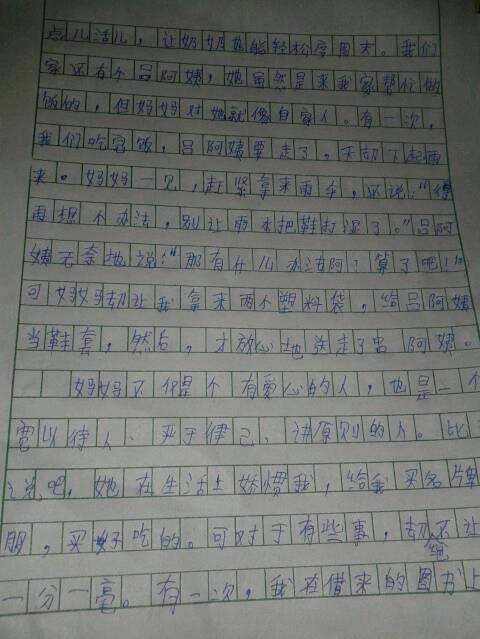 点儿活儿，让奶奶也能轻松度周末。我们
家还有个吕阿姨，她虽然是来我家帮忙做
饭的，但妈妈对她就像自家人。有一次，
我们吃完饭，吕阿姨要走了，天却下起雨
来。妈妈一见，赶紧拿来雨伞，还说："得
再想个办法，别让雨水把鞋打湿了。"吕阿
姨无奈地说："那有什么办法阿？算了吧！"
可妈妈却让我拿来两个塑料袋，给吕阿姨
当鞋套，然后，才放心地送走了吕阿姨。
妈妈不但是个有爱心的人，也是一个
宽以待人、严于律己、讲原则的人。比
说吧，她在生活上娇惯我，给我买名牌
服，买好吃的。可对于有些事，却绝不让
一分一毫。有一次，我在借来的图书上